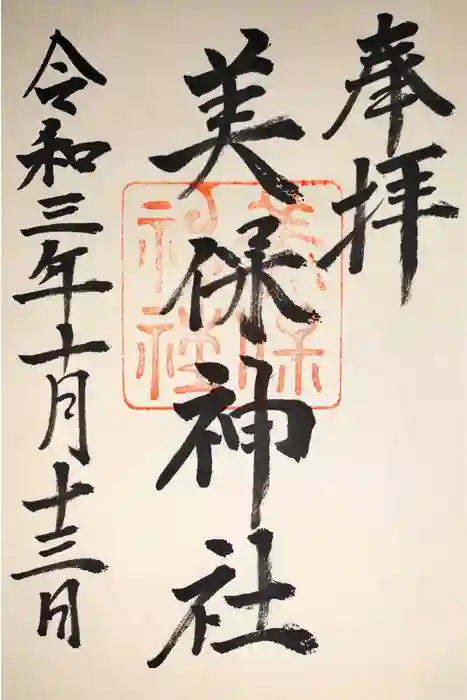 奉拝
美保神社
美保神社
令和三年十月十三日